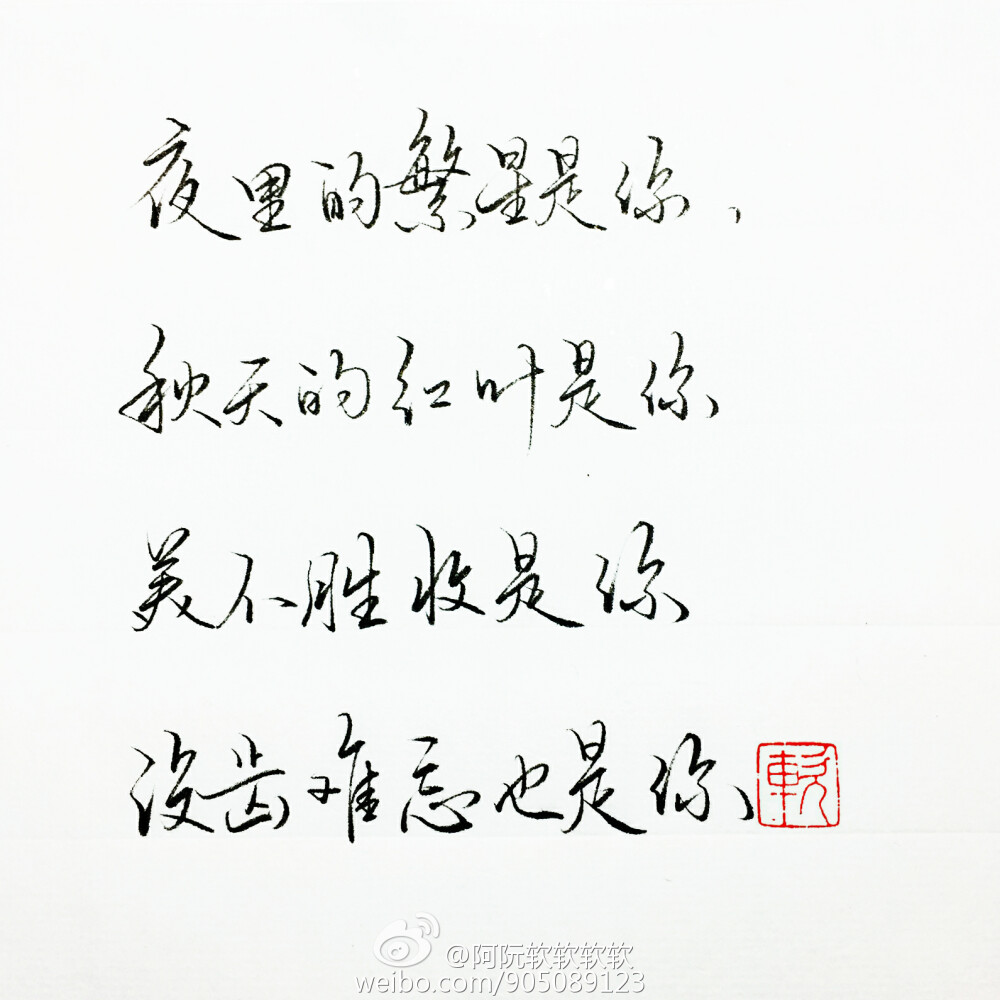 夜里的繁星是你，
秋天的红叶是你
美不胜收是你
没齿难忘也是你
软
@阿阮软软软软
weibo.com/905089123